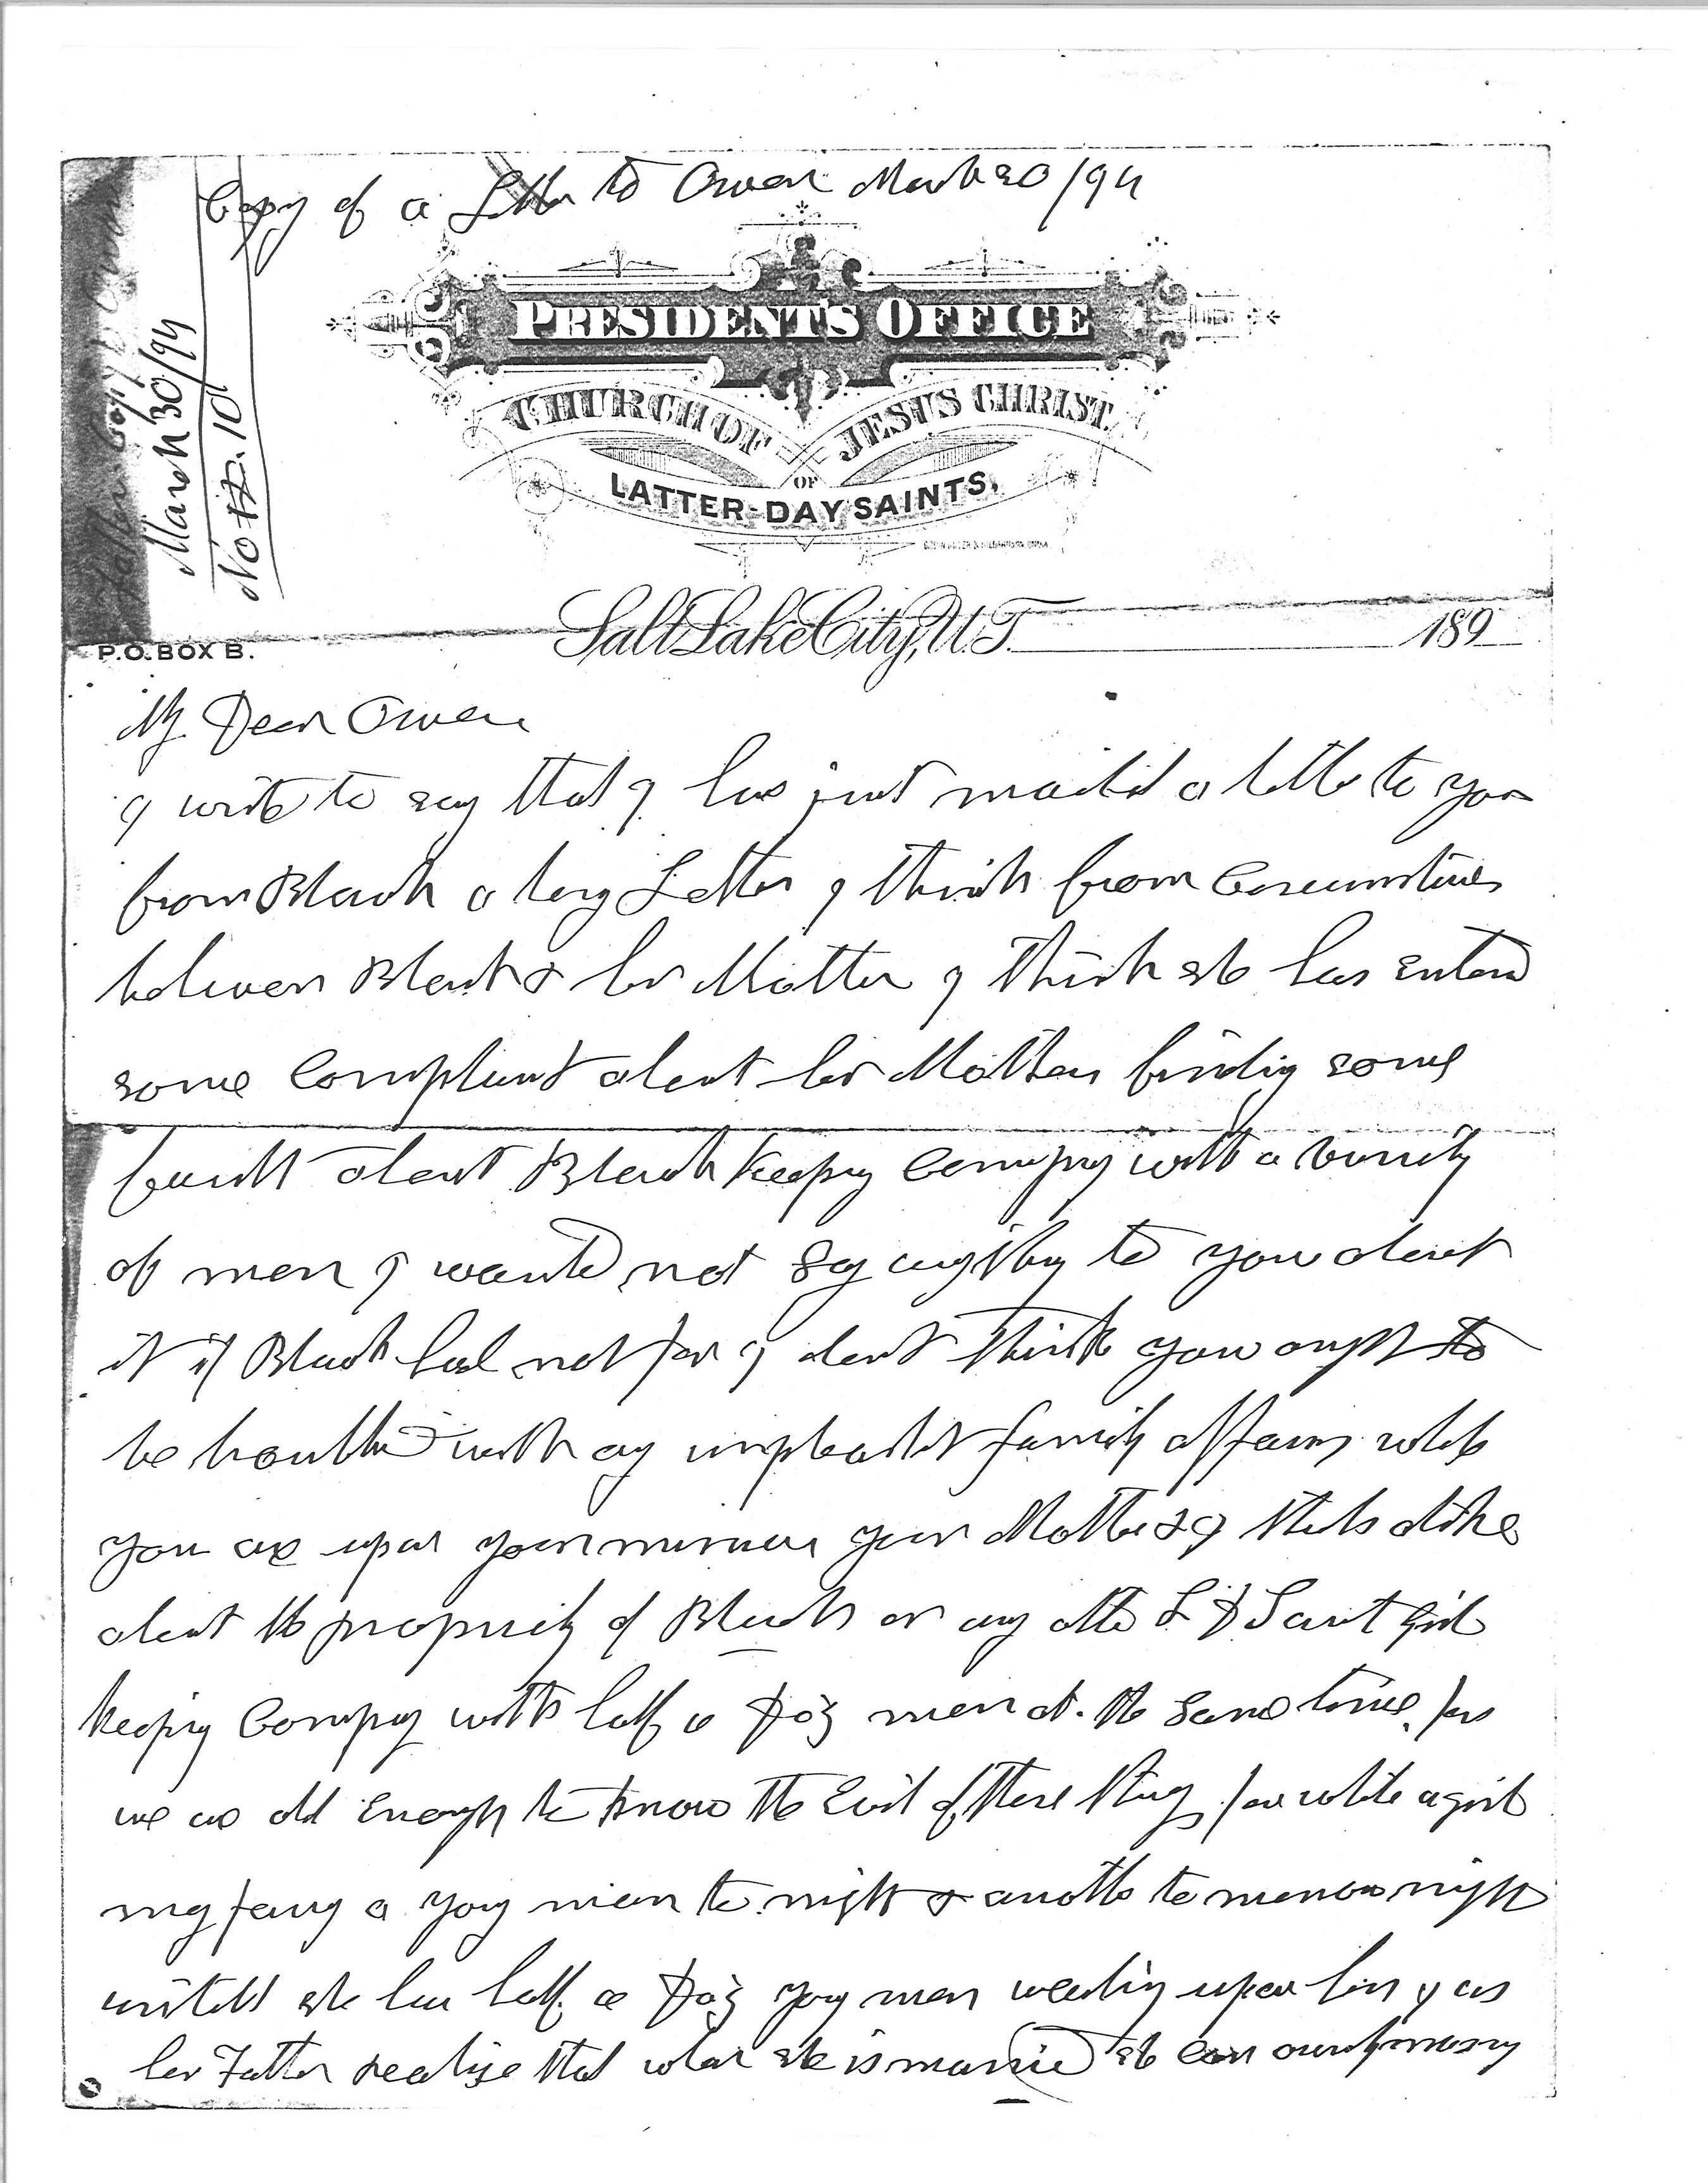 Copy of a Letter to Owen March 30/94
March 30/94
No 12. 10
PRESIDENT'S OFFICE
CHURCH OF JESUS CHRIST
OF
LATTER-DAY SAINTS,
P.O. BOX B.
Salt Lake City, U.T. 189
My Dear Owen
I write to say that I have just mailed a letter to you
from Blanch a long Letter I think from Circumstances
between Blanch & her Mother I think she has entered
some Complaint about her Mother finding some
fault about Blanch Keeping Company with a variety
of men I would not say anything to you about
it if Blanch had not for I dont think you ought to
be troubled with any unpleasant family affairs while
you are upon your mission your Mother & I think alike
about the propriety of Blanch or any other L D Saint girl
keeping Company with half a Doz men at the same time, for
we are old Enough to know the Evil of these things for while a girl
may fancy a young man to night & another to morrow night
untill she has half a Doz young men waiting upon her I as
her Father realize that when she is married she can ownly marry